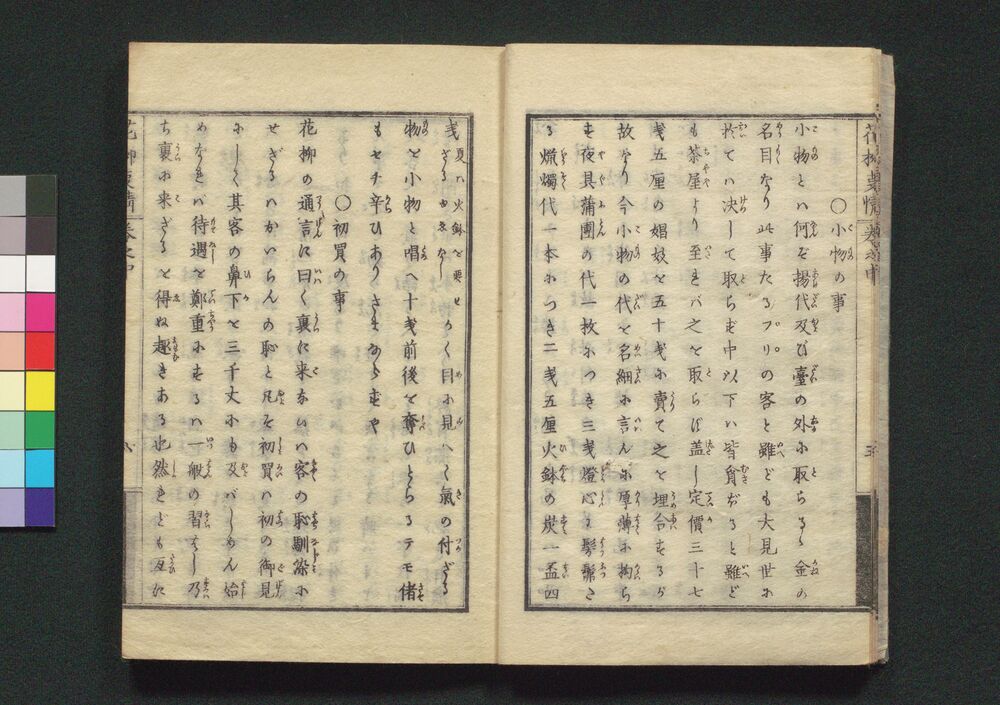 ○小物の事
小物とハ何ぞ揚代及び臺の外に取らるゝ金の
名目なり此事たるプリの客と雖ども大見世に
於てハ決して取らず中以下ハ皆貪ぢると雖ど
も茶屋より至れバ之を取らば盖し定價三十七
銭五厘の娼妓を五十銭に賣て之を埋合するが
故なり今小物の代を名細に言んに厚薄に拘ら
ず夜具蒲團の代一枚につき三銭燈心に髣髴た
る蝋燭代一本につき二銭五厘火鉢の炭一盃四
銭夏ハ火鉢を要せざるゆゑなしかく目に見へて氣の付ざる
物を小物と唱へ十銭前後を奪ひとらるテモ偖
もセチ辛ひありさまならずや
○初買の事
花柳の通言に曰く裏に来ないハ客の恥馴染に
せざるハかいちんの恥と凡そ初買ハ初の御見
にして其客の鼻下を三千丈にも及バしめん始
めなれバ待遇を鄭重にするハ一般の習はし乃
ち裏に来ざるを得ぬ趣きある也然れども互に
花柳事情 巻之中